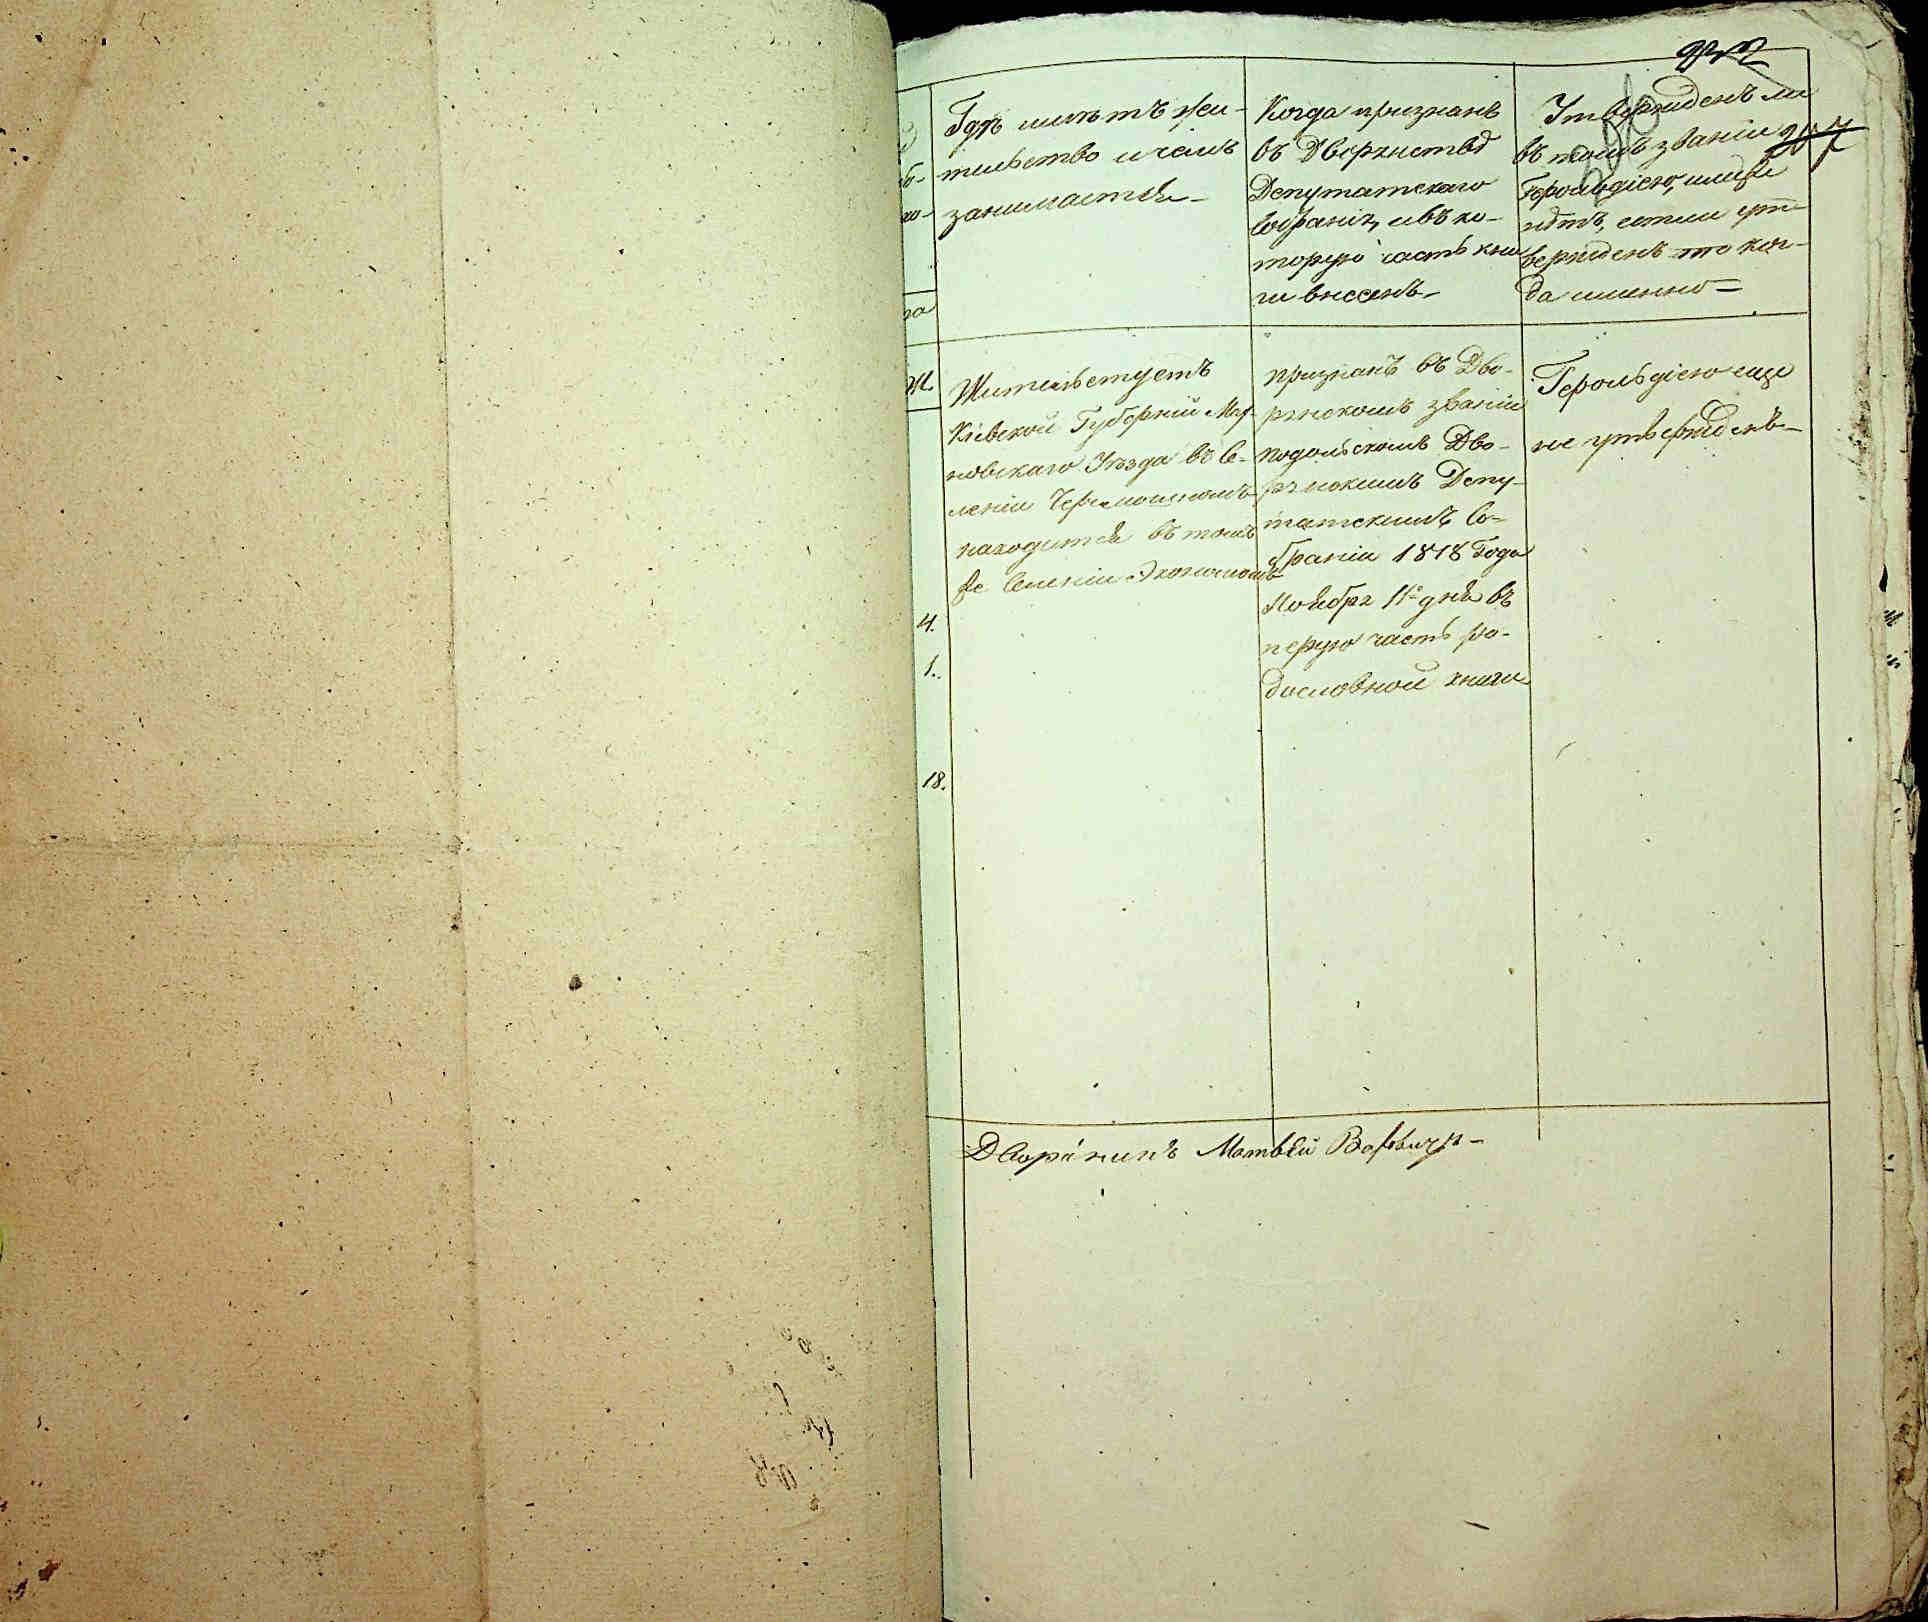 Гдѣ имѣетъ жи-
тельство и чемъ
занимается
Когда признанъ
въ Дворянствѣ
Депутатскаго
Собранія, и въ ко-
торую часть кни
ги внесенъ
Утвержденъ ли
въ томъ званіи
Герольдіею, или же
нѣтъ, если ут-
вержденъ то ког-
да именно
Жительствуетъ
Кіевской Губерніи
новскаго Уѣзда въ Се-
леніи
находится въ томъ
же Селеніи Экономомъ
признанъ въ Дво-
рянскомъ званіи
Подольскимъ Дво-
рянскимъ Депу-
татскимъ Со-
браніи 1818 Года
Ноября 11го дня въ
перую часть ро-
дословной книги
Герольдіею еще
не утвержденъ
4.
1.
18.
Дворянинъ Матвѣй